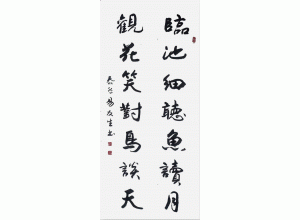 臨池細聽魚讀月
觀花笑對鳥談天